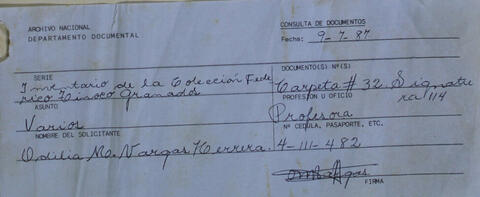 ARCHIVO NACIONAL
DEPARTAMENTO DOCUMENTAL
CONSULTA DE DOCUMENTOS
Fecha: 9-7-87
SERIE
Inventario de la Colección Fede
rico Tinoco Granados
DOCUMENTO(S) Nº(S)
Carpeta # 32. Signatu
ra 114
ASUNTO
Varios
PROFESION U OFICIO
Profesora
NOMBRE DEL SOLICITANTE
Odilia M. Vargas Herrera.
Nº CEDULA, PASAPORTE, ETC.
4-111-482
FIRMA